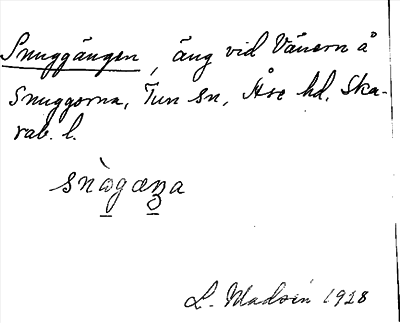 Snuggängen, äng vid Vänern å
Snuggorna, Tun sn, Åse hd, Ska-
rab. l.
snὼgæŋa
L. Madsén 1928